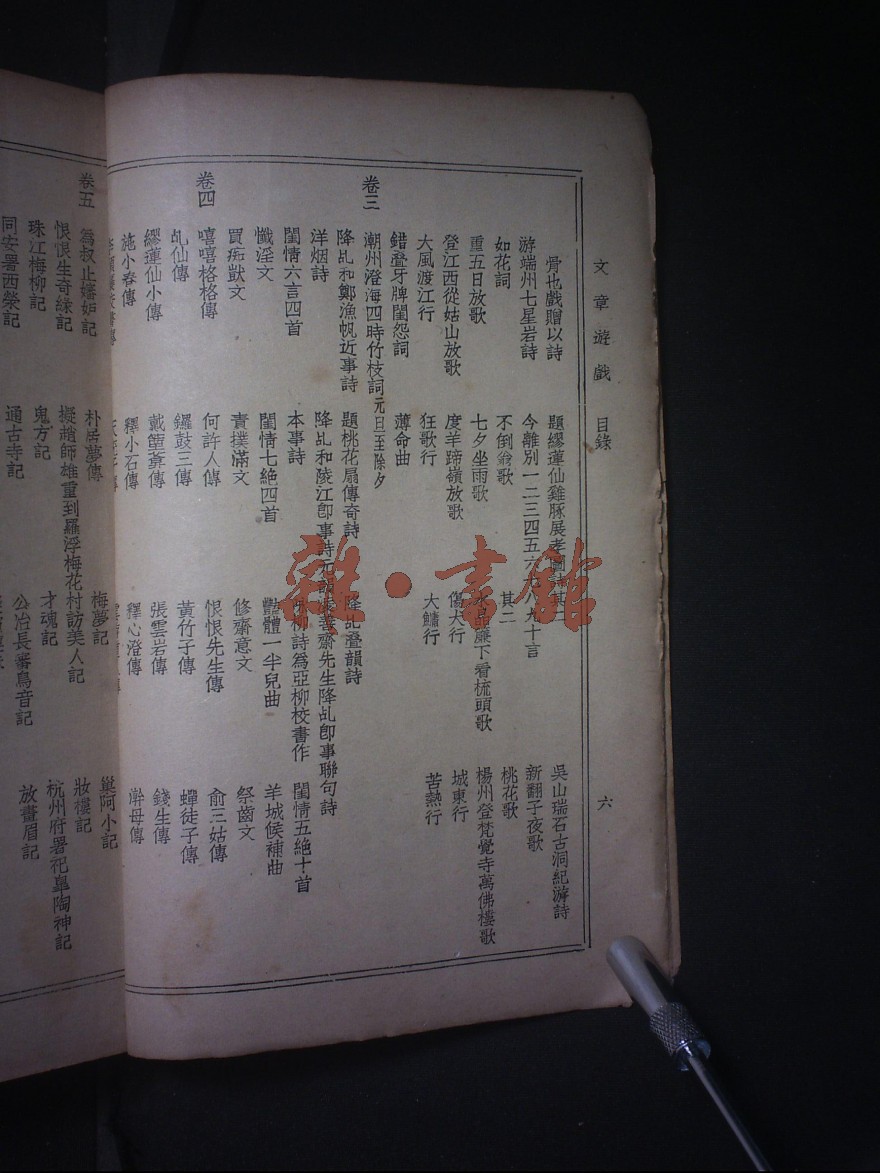 文章遊戲 目錄 六
骨也戲贈以詩 題繆蓮仙雞豚展孝圖 其二 吳山瑞石古洞紀游詩
游端州七星岩詩 今離別一二三四五六七八九十言 新翻子夜歌
如花詞 不倒翁歌 其二 桃花歌
重五日放歌 七夕坐雨歌 水晶簾下看梳頭歌 楊州登梵覺寺萬佛樓歌
登江西從姑山放歌 度羊蹄嶺放歌 傷犬行 城東行
大風渡江行 狂歌行 大鱅行 苦熱行
錯叠牙牌閨怨詞 薄命曲
卷三 潮州澄海四時竹枝詞元日至除夕
降乩和鄭漁帆近事詩 題桃花扇傳奇詩 降乩叠韻詩
洋烟詩 降乩和陵江卽事詩元韻 善齋先生降乩卽事聯句詩
閨情六言四首 本事詩 柳詩爲亞柳校書作 閨情五絶十首
懺淫文 閨情七絶四首 豔體一半兒曲 羊城候補曲
買痴獃文 責撲滿文 修齋意文 祭齒文
卷四 嘻嘻格格傳 何許人傳 恨恨先生傳 俞三姑傳
乩仙傳 鑼鼓三傳 黃竹子傳 蟬徒子傳
繆蓮仙小傳 戴簹葊傳 張雲岩傳 錢生傳
施小春傳 釋小石傳 釋心澄傳 辦母傳
朴居夢傳 梅夢記 巢阿小記
卷五 爲叔止嬸妬記 擬趙師雄重到羅浮梅花村訪美人記 妝樓記
恨恨生奇緣記 鬼方記 才魂記 杭州府署祀臯陶神記
珠江梅柳記 通古寺記 公冶長審鳥音記 放畫眉記
同安署西榮記
雜·書館